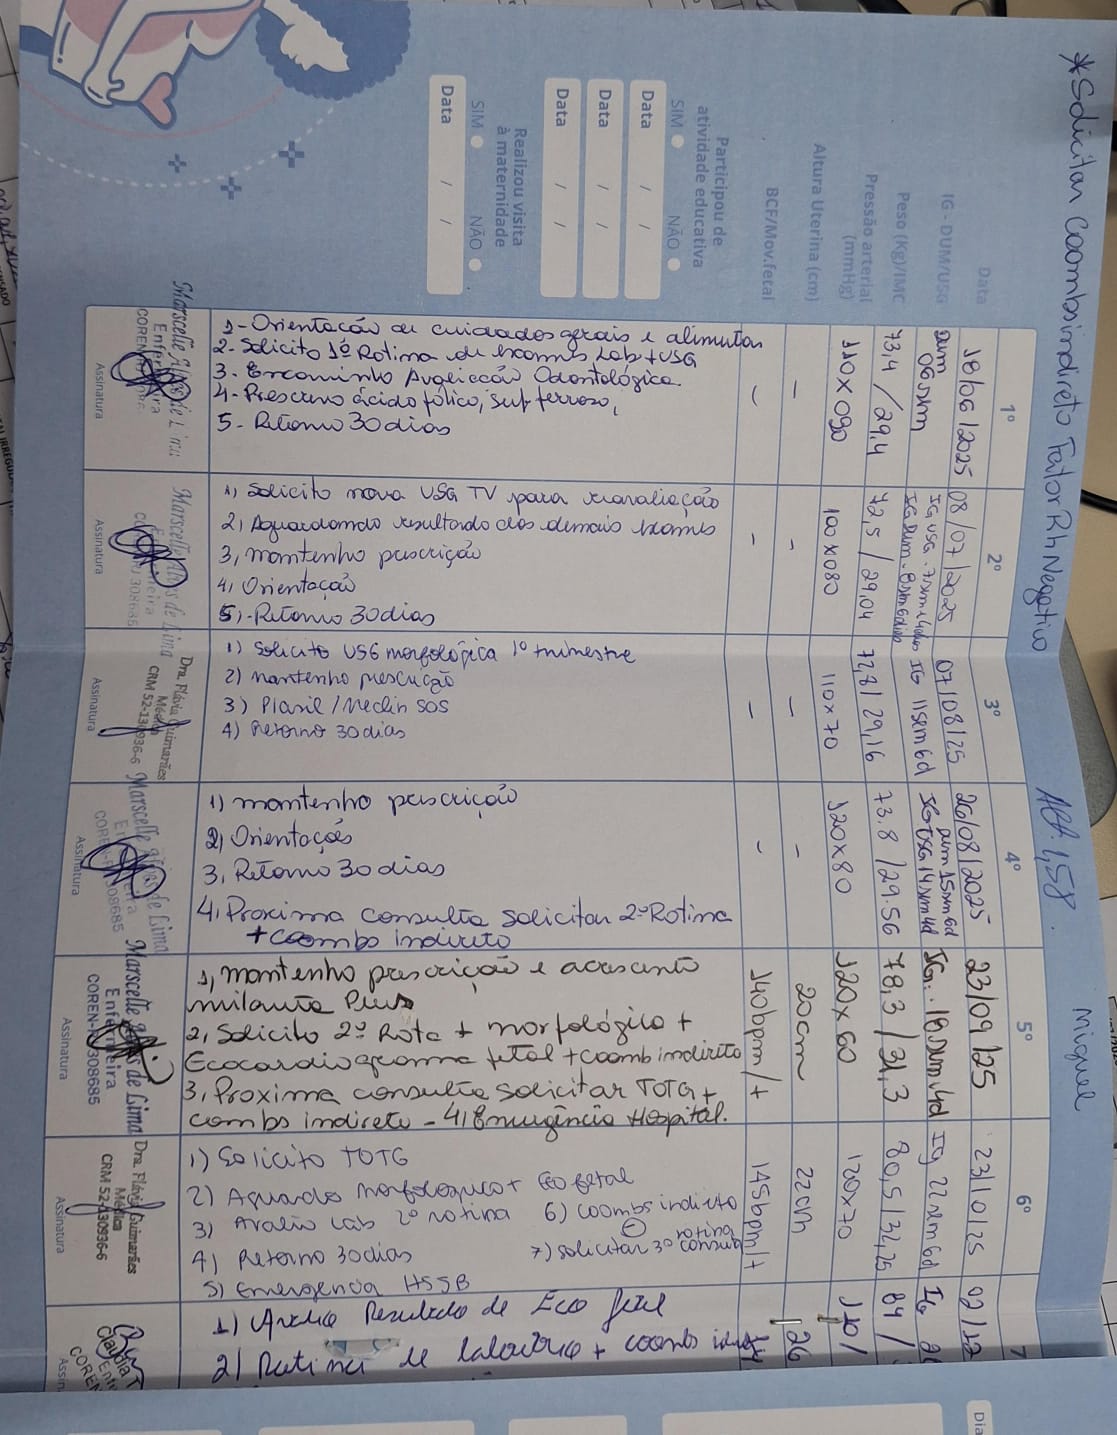 *Solicitar Coombs indireto Fator Rh Negativo
Alt. 1,58.
Miguel
Data
IG - DUM/USG
Peso (Kg)/IMC
Pressão arterial
(mmHg)
Altura Uterina (cm)
BCF/Mov.fetal
Participou de
atividade educativa
SIM NÃO
Data / /
Data / /
Data / /
Realizou visita
à maternidade
SIM NÃO
Data / /
1º
18/06/2025
DUM
06sem
73,4 / 29,4
110x090
-
-
1- Orientação de cuidados gerais e alimentar
2- Solicito 1ª Rotina de exames Lab + USG
3. Encaminho Avaliação Odontológica.
4- Prescrevo ácido fólico, sulf ferroso,
5- Retorno 30 dias
Marscelle Alves de Lima
Enfermeira
COREN
Assinatura
2º
08/07/2025
IG USG. 7sem4dias
IG DUM. 8sem6dias
72,5 / 29,04
100x080
-
-
1, Solicito nova USG TV para reavaliação
2, Aguardando resultado dos demais exames
3, mantenho prescrição
4, Orientação
5, - Retorno 30 dias
Marscelle Alves de Lima
308685
Assinatura
3º
07/08/25
IG 11sem6d
72,8 / 29,16
110x70
-
-
1) Solicito USG morfológica 1º trimestre
2) mantenho prescrição
3) Plasil / Meclin SOS
4) Retorno 30 dias
Dra. Flávia Guimarães
Médica
CRM 52-130936-6
Assinatura
4º
26/08/2025
DUM 15sem6d
IG USG 14sem4d
73.8 / 29.56
120x80
-
-
1) mantenho prescrição
2, Orientações
3, Retorno 30 dias
4, Proxima consulta solicitar 2ª Rotina
+ coombs indireto
Marscelle Alves de Lima
308685
Assinatura
5º
23/09/25
IG.. 18sem4d
78,3 / 31,3
120x60
20cm
140bpm/+
1, mantenho prescrição e acrescento
milanta Plus
2, Solicito 2ª Rota + morfológico +
Ecocardiograma fetal + coomb indireto
3, Proxima consulta solicitar TOTG +
combs indireto - 4, Emergência Hospital.
Marscelle Alves de Lima
Enfermeira
COREN-RJ 308685
Assinatura
6º
23/10/25
IG 22sem6d
80,5 / 32,25
120x70
22cm
145bpm/+
1) Solicito TOTG
2) Aguardo morfologico + Eco fetal
3) Avalio Lab 2º rotina 6) coombs indireto
4) Retorno 30 dias 7) solicitar 3º rotina
5) Emergência HSSB
Dra. Flávia Guimarães
Médica
CRM 52-130936-6
Assinatura
7
02/12
IG
84 /
110/
26
1) Avalio Resultado de Eco fetal
2) Rotina de laboratório + coombs
Claudia T
COREN
Assin
Dia